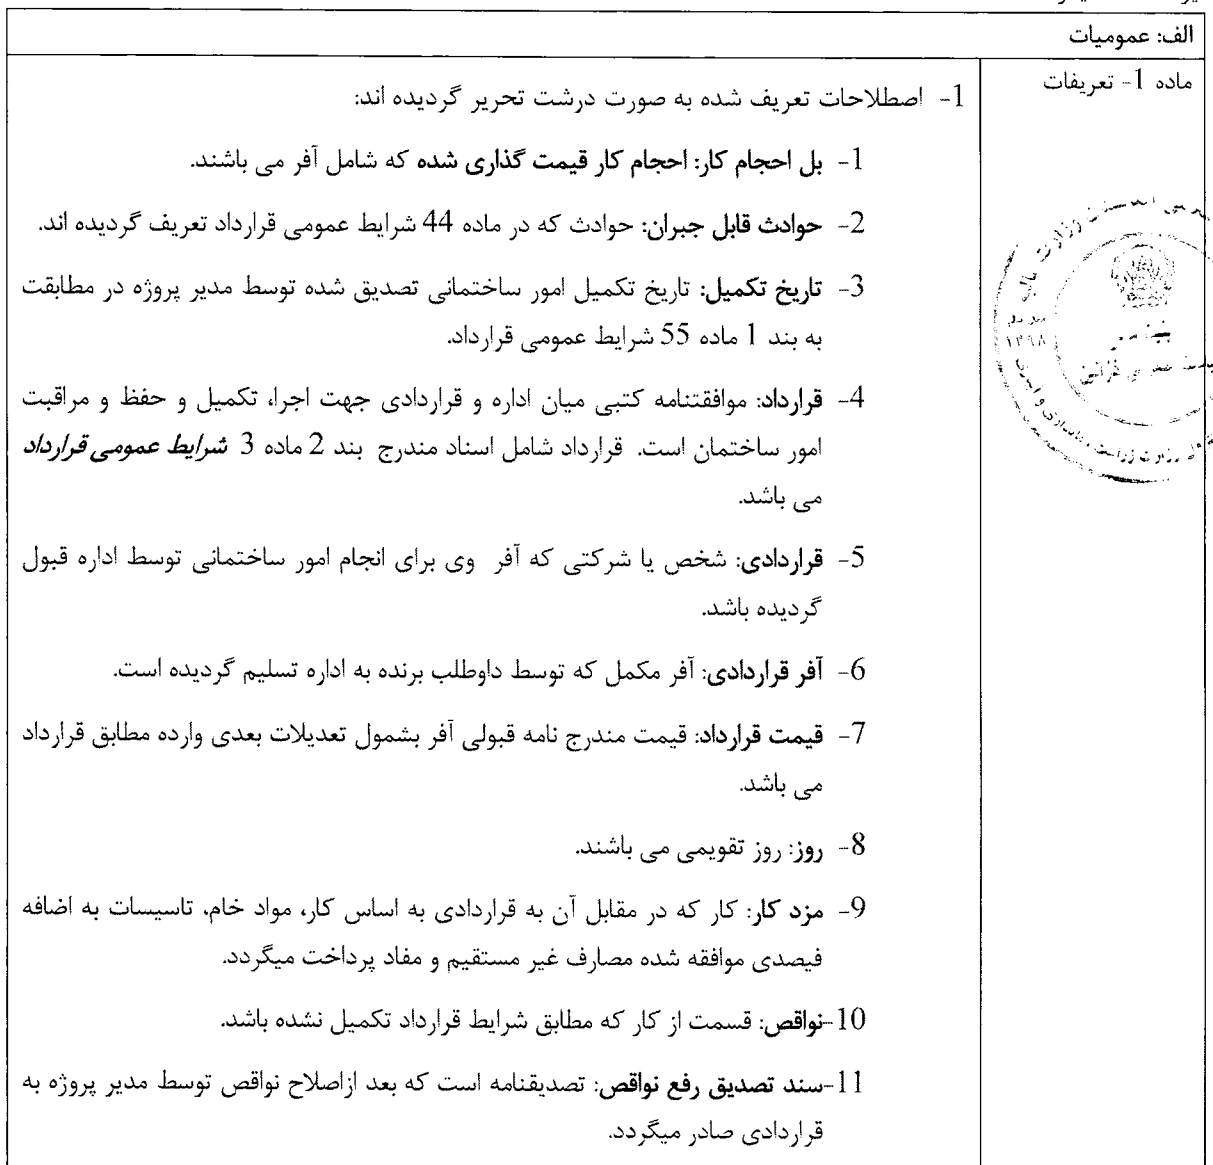 الف: عمومیات
ماده 1- تعریفات
1- اصطلاحات تعریف شده به صورت درشت تحریر گردیده اند:
1- بل احجام کار: احجام کار قیمت گذاری شده که شامل آفر می باشند.
2- حوادث قابل جبران: حوادث که در ماده 44 شرایط عمومی قرارداد تعریف گردیده اند.
3- تاریخ تکمیل: تاریخ تکمیل امور ساختمانی تصدیق شده توسط مدیر پروژه در مطابقت
به بند 1 ماده 55 شرایط عمومی قرارداد.
4- قرارداد: موافقتنامه کتبی میان اداره و قراردادی جهت اجرا، تکمیل و حفظ و مراقبت
امور ساختمان است. قرارداد شامل اسناد مندرج بند 2 ماده 3 شرایط عمومی قرارداد
می باشد.
5- قراردادی: شخص یا شرکتی که آفر وی برای انجام امور ساختمانی توسط اداره قبول
گردیده باشد.
6- آفر قراردادی: آفر مکمل که توسط داوطلب برنده به اداره تسلیم گردیده است.
7- قیمت قرارداد: قیمت مندرج نامه قبولی آفر بشمول تعدیلات بعدی وارده مطابق قرارداد
می باشد.
8- روز: روز تقویمی می باشند.
9- مزد کار: کار که در مقابل آن به قراردادی به اساس کار، مواد خام، تاسیسات به اضافه
فیصدی موافقه شده مصارف غیر مستقیم و مفاد پرداخت میگردد.
10-نواقص: قسمت از کار که مطابق شرایط قرارداد تکمیل نشده باشد.
11-سند تصدیق رفع نواقص: تصدیقنامه است که بعد ازاصلاح نواقص توسط مدیر پروژه به
قراردادی صادر میگردد.